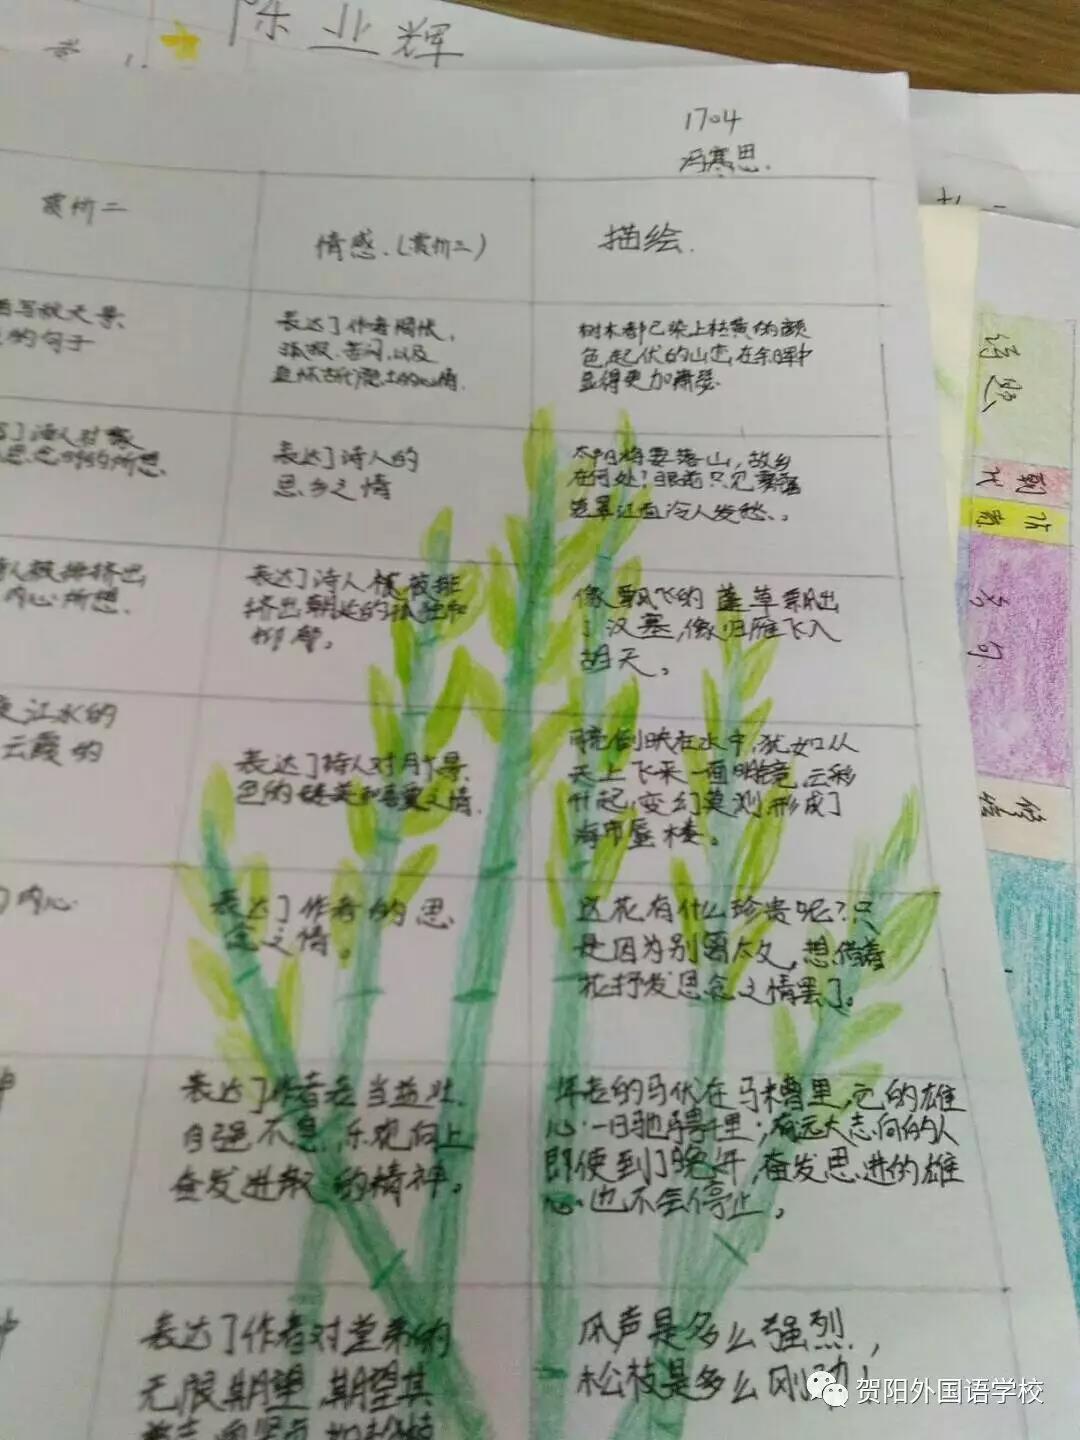 陈业辉
1704
冯寒思.
赏析二
情感.(赏析三)
描绘.
写秋天景
的句子
表达了作者
孤寂.苦闷.以及
树木都已染上枯黄的颜
色,起伏的山峦在余晖中
显得更加萧瑟.
诗人对家
思念时的所想.
表达了诗人的
思乡之情
太阳将要落山,故乡
在何处?眼前只见
人被排挤出
内心所想.
表达了诗人被排
挤出朝廷的孤独和
抑郁。
像飘飞的蓬草飘出
了汉塞,像归雁飞入
胡天。
江水的
云霞的
表达了诗人对月下景
色的赞美和喜爱之情.
月亮倒映在水中,犹如从
天上飞来一面明镜,云彩
升起,变幻莫测,形成了
海市蜃楼。
内心
表达了作者的思
念之情。
这花有什么珍贵呢?只
是因为别离太久,想借着
花抒发思念之情罢了。
表达了作者老当益壮.
自强不息.乐观向上
奋发进取的精神。
年老的马伏在马槽里,它的雄
心一日驰骋千里;有远大志向的人
即使到了晚年,奋发思进的雄
心也不会停止。
表达了作者对堂弟的
无限期望,期望其
风声是多么强烈,
松枝是多么刚劲!
诗题
朝代
作者
名句
修辞
贺阳外国语学校